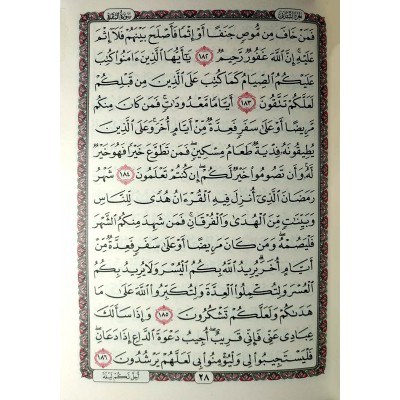 الجزء الثاني
سورة البقرة
فَمَنْ خَافَ مِن مُّوصٍ جَنَفًا أَوْ إِثْمًا فَأَصْلَحَ بَيْنَهُمْ فَلَآ إِثْمَ
عَلَيْهِ ۚ إِنَّ ٱللَّهَ غَفُورٌ رَّحِيمٌ ١٨٢ يَٰٓأَيُّهَا ٱلَّذِينَ ءَامَنُوا۟ كُتِبَ
عَلَيْكُمُ ٱلصِّيَامُ كَمَا كُتِبَ عَلَى ٱلَّذِينَ مِن قَبْلِكُمْ
لَعَلَّكُمْ تَتَّقُونَ ١٨٣ أَيَّامًا مَّعْدُودَٰتٍ ۚ فَمَن كَانَ مِنكُم
مَّرِيضًا أَوْ عَلَىٰ سَفَرٍ فَعِدَّةٌ مِّنْ أَيَّامٍ أُخَرَ ۚ وَعَلَى ٱلَّذِينَ
يُطِيقُونَهُۥ فِدْيَةٌ طَعَامُ مِسْكِينٍ ۖ فَمَن تَطَوَّعَ خَيْرًا فَهُوَ خَيْرٌ
لَّهُۥ ۚ وَأَن تَصُومُوا۟ خَيْرٌ لَّكُمْ ۖ إِن كُنتُمْ تَعْلَمُونَ ١٨٤ شَهْرُ
رَمَضَانَ ٱلَّذِىٓ أُنزِلَ فِيهِ ٱلْقُرْءَانُ هُدًى لِّلنَّاسِ
وَبَيِّنَٰتٍ مِّنَ ٱلْهُدَىٰ وَٱلْفُرْقَانِ ۚ فَمَن شَهِدَ مِنكُمُ ٱلشَّهْرَ
فَلْيَصُمْهُ ۖ وَمَن كَانَ مَرِيضًا أَوْ عَلَىٰ سَفَرٍ فَعِدَّةٌ مِّنْ
أَيَّامٍ أُخَرَ ۗ يُرِيدُ ٱللَّهُ بِكُمُ ٱلْيُسْرَ وَلَا يُرِيدُ بِكُمُ
ٱلْعُسْرَ وَلِتُكْمِلُوا۟ ٱلْعِدَّةَ وَلِتُكَبِّرُوا۟ ٱللَّهَ عَلَىٰ مَا
هَدَىٰكُمْ وَلَعَلَّكُمْ تَشْكُرُونَ ١٨٥ وَإِذَا سَأَلَكَ
عِبَادِى عَنِّى فَإِنِّى قَرِيبٌ ۖ أُجِيبُ دَعْوَةَ ٱلدَّاعِ إِذَا دَعَانِ ۖ
فَلْيَسْتَجِيبُوا۟ لِى وَلْيُؤْمِنُوا۟ بِى لَعَلَّهُمْ يَرْشُدُونَ ١٨٦
٢٨
أحل لكم ليلة